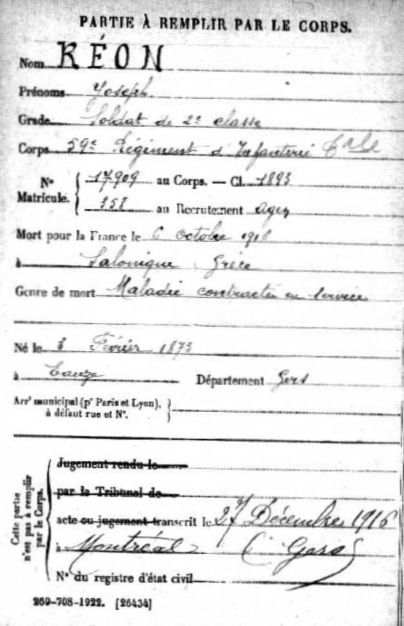 PARTIE À REMPLIR PAR LE CORPS.
Nom RÉON
Prénoms Joseph
Grade Soldat de 2e classe
Corps 59e Régiment d'Infanterie Cale
Nos Matricule. { 17.909 au Corps. — Cl. 1893
358 au Recrutement Agen
Mort pour la France le 6 octobre 1916
à Salonique Grèce
Genre de mort Maladie contractée en service
Né le 3 Février 1873
à Eauze Département Gers
Arrt municipal (pr Paris et Lyon), }
à défaut rue et No.
Cette partie n'est pas à remplir par le Corps.
Jugement rendu le
par le Tribunal de
acte ou jugement transcrit le 27 Décembre 1916
à Montréal (Gers)
No du registre d'état civil
269-708-1922. [26434]